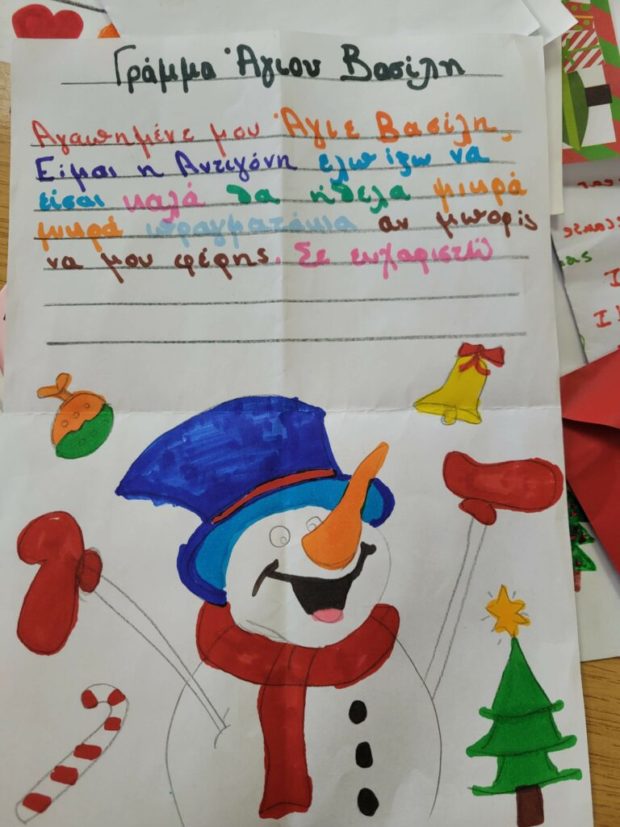 Γράμμα Άγιου Βασίλη
Αγαπημένε μου Άγιε Βασίλη,
Είμαι η Αντιγόνη ελπίζω να
είσαι καλά θα ήθελα μικρά
μικρά πραγματάκια αν μπορίς
να μου φέρης. Σε ευχαριστώ